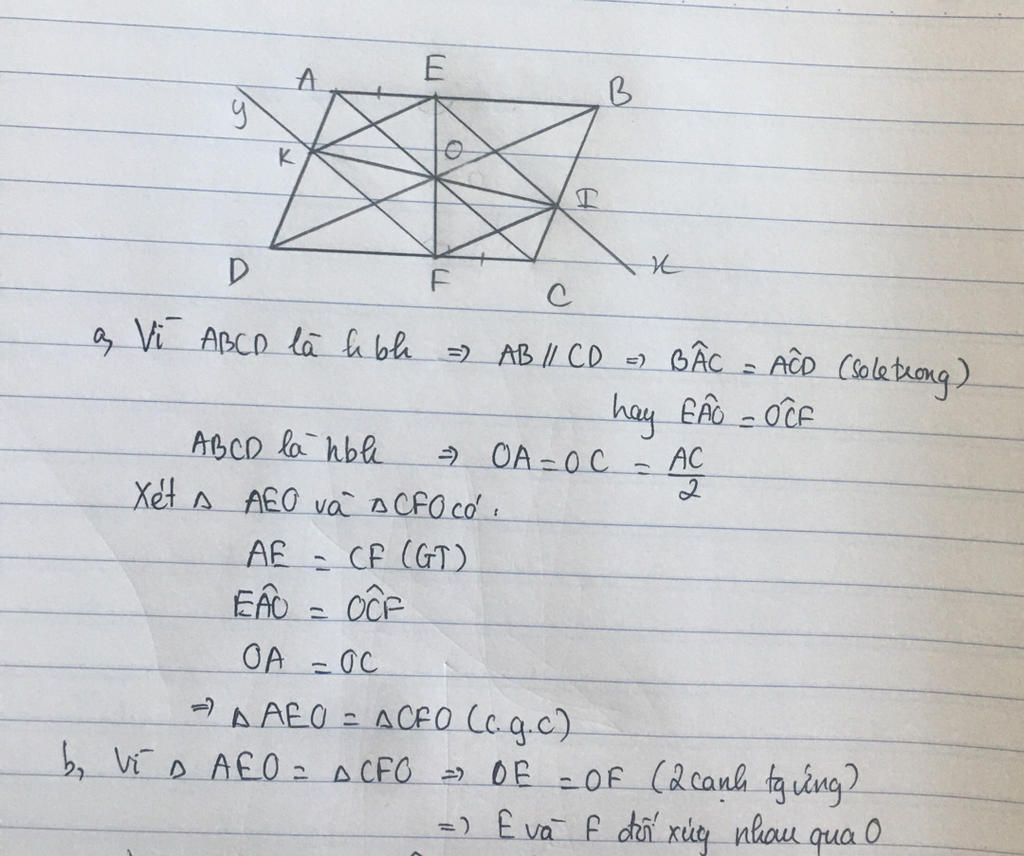 A E B
y
K O
I
D F C x
a, Vì ABCD là hbh => AB // CD => BÂC = AĈD (sole trong)
hay EÂO = OĈF
ABCD là hbh => OA = OC = AC/2
Xét Δ AEO và ΔCFO có:
AE = CF (GT)
EÂO = OĈF
OA = OC
=> Δ AEO = ΔCFO (c.g.c)
b, Vì Δ AEO = ΔCFO => OE = OF (2 cạnh tg ứng)
=> E và F đối xứng nhau qua O